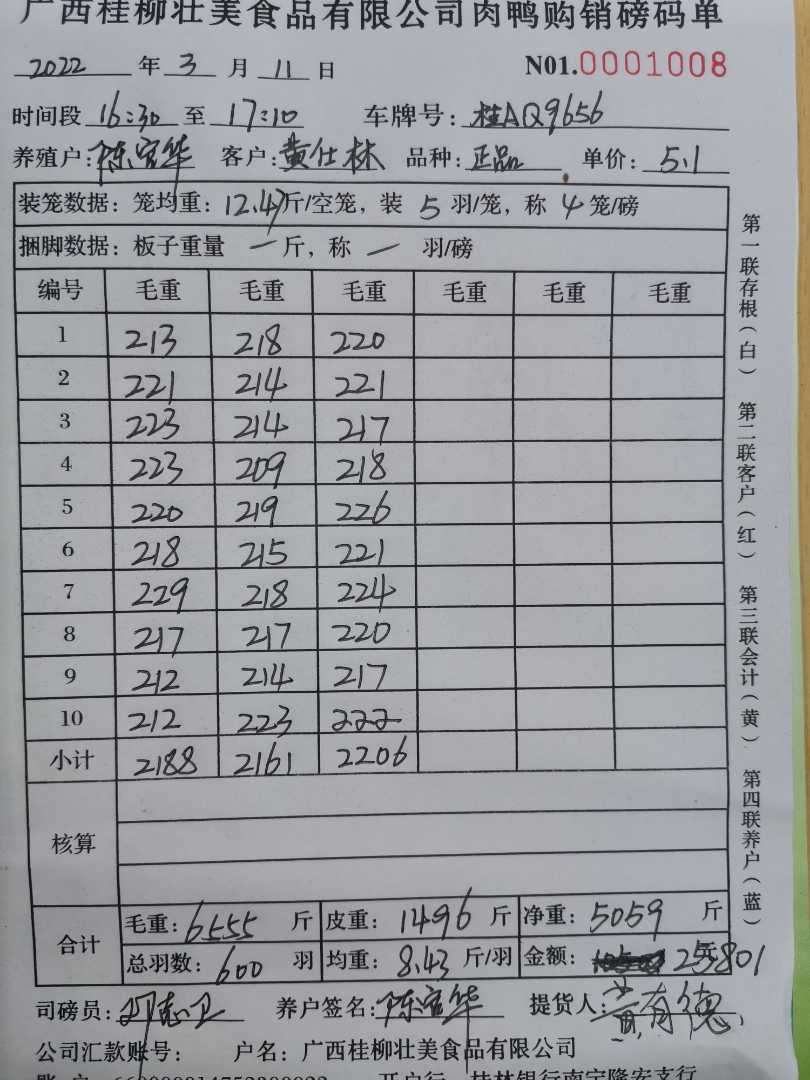 广西桂柳壮美食品有限公司肉鸭购销磅码单
2022 年 3 月 11 日 N01.0001008
时间段 16:30 至 17:10 车牌号: 桂AQ9656
养殖户: 陈官华 客户: 黄仕林 品种: 正品 单价: 5.1
装笼数据: 笼均重: 12.47斤/空笼, 装 5 羽/笼, 称 4 笼/磅
捆脚数据: 板子重量 一 斤, 称 一 羽/磅
编号 毛重 毛重 毛重 毛重 毛重 毛重
1 213 218 220
2 221 214 221
3 223 214 217
4 223 209 218
5 220 219 226
6 218 215 221
7 229 218 224
8 217 217 220
9 212 214 217
10 212 223 222
小计 2188 2161 2206
核算
合计
毛重: 6555 斤 皮重: 1496 斤 净重: 5059 斤
总羽数: 600 羽 均重: 8.43 斤/羽 金额: 25801
司磅员: 养户签名: 陈官华 提货人: 黄有德
公司汇款账号: 户名: 广西桂柳壮美食品有限公司
开户行 桂林银行南宁隆安支行
第一联存根(白) 第二联客户(红) 第三联会计(黄) 第四联养户(蓝)